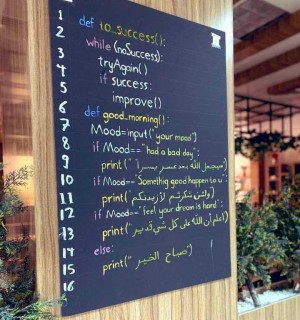 1 def to_success():
2 while (noSuccess):
3 tryAgain()
4 if success:
5 improve()
6 def good_morning():
7 Mood=input("your mood")
8 if Mood=="had a bad day":
9 print("سيجعل الله بعد عسر يسراً")
10 if Mood=="Somethig good happen to u":
11 print("ولئن شكرتم لأزيدنكم")
12 if Mood=="feel your dream is hard":
13 print("اعلم أن الله على كل شيء قدير")
14 else:
15 print("صباح الخير")
16